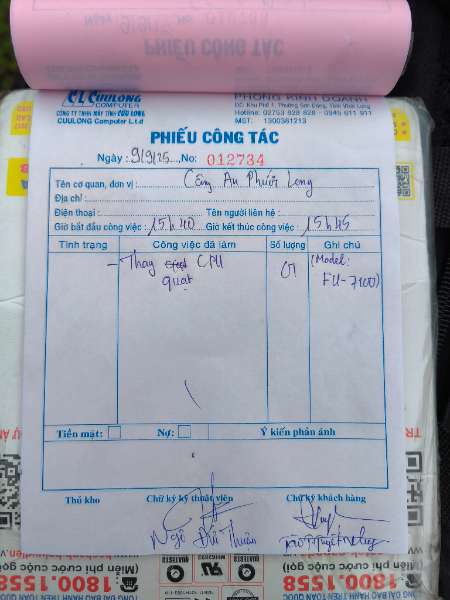 PHIẾU CÔNG TÁC
CL CUULONG
COMPUTER
CÔNG TY TNHH MÁY TÍNH CỬU LONG
CUULONG Computer Ltd
PHÒNG KINH DOANH
Hotline: 02753 828 828 - 0945 911 911
MST: 1300361213
PHIẾU CÔNG TÁC
Ngày: 9/9/25 No: 012734
Tên cơ quan, đơn vị: Công An Phước Long
Địa chỉ:
Điện thoại: Tên người liên hệ:
Giờ bắt đầu công việc: 15h40 Giờ kết thúc công việc: 15h45
Tình trạng Công việc đã làm Số lượng Ghi chú
- Thay CPU 01 (Model:
quạt FU-7100)
Tiền mặt: Nợ: Ý kiến phản ánh
Thủ kho Chữ ký kỹ thuật viên Chữ ký khách hàng
Ngô Đức Thuận
1800.1558
(Miễn phí cước gọi)
1800.1558